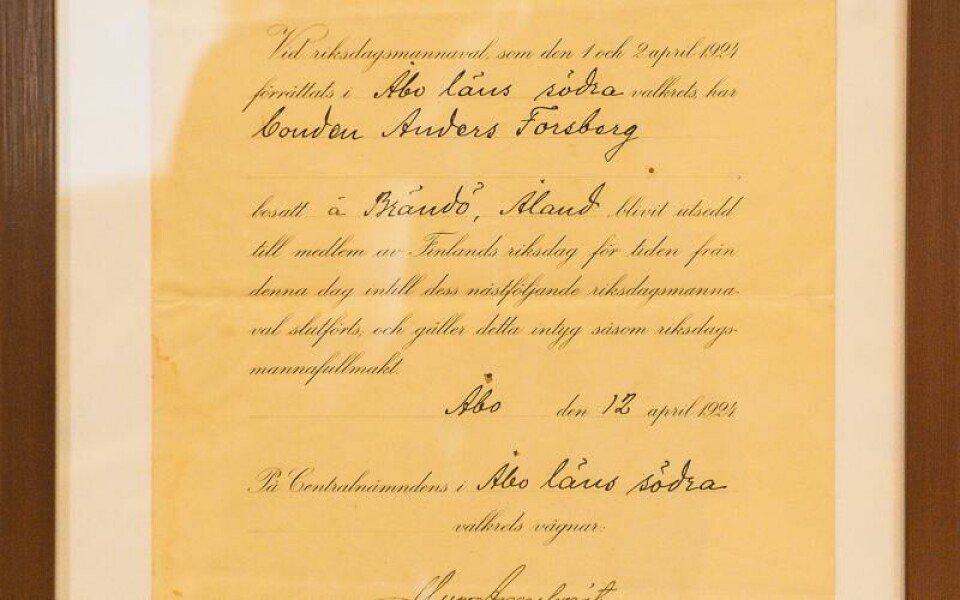 Vid riksdagsmannaval, som den 1 och 2 april 1924
förrättats i Åbo läns södra valkrets, har
bonden Anders Forsberg
bosatt å Brändö, Åland blivit utsedd
till medlem av Finlands riksdag för tiden från
denna dag intill dess nästföljande riksdagsmanna-
val slutförts, och gäller detta intyg såsom riksdags-
mannafullmakt.
Åbo den 12 april 1924
På Centralnämndens i Åbo läns södra
valkrets vägnar: